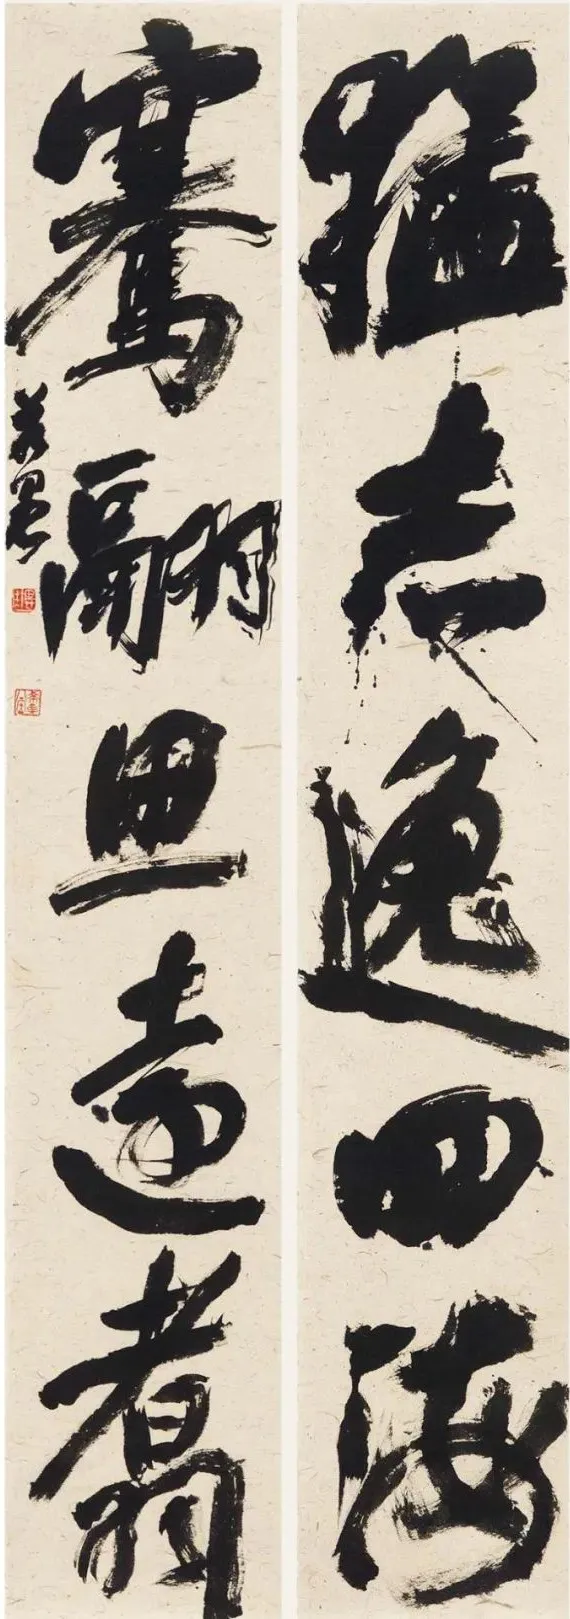 猛志逸四海
騫翮思遠翥
若愚